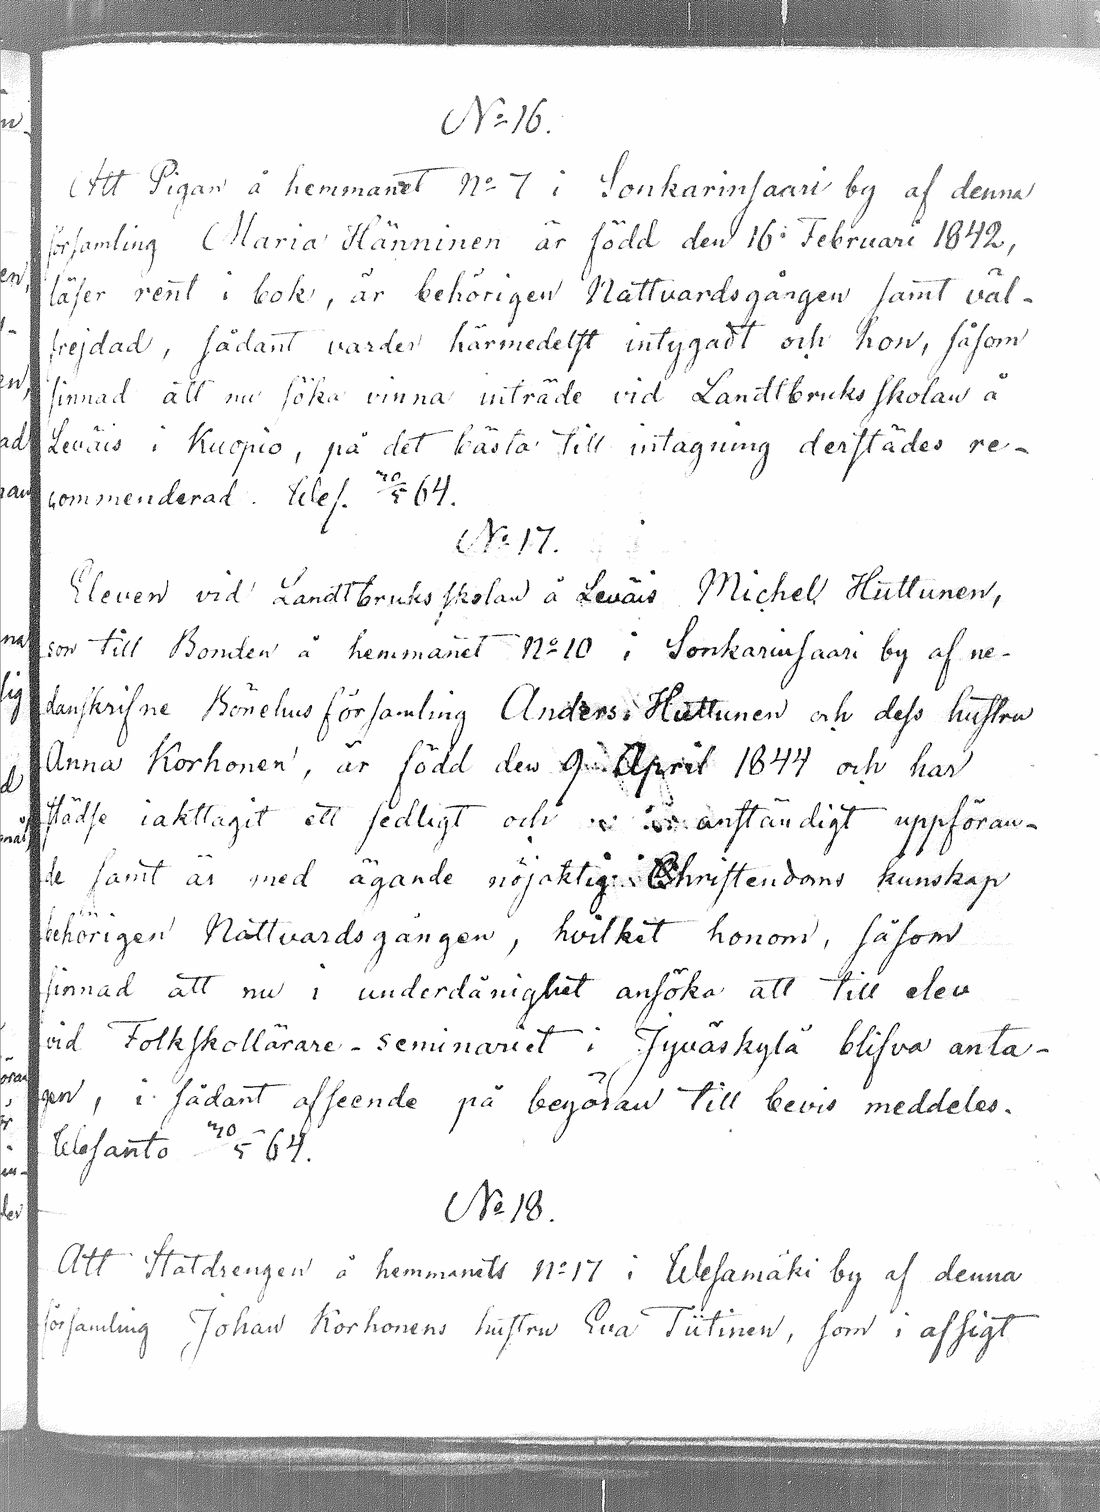 No 16.
Att Pigan å hemmanet No 7 i Sonkarinsaari by af denna
församling Maria Hänninen är född den 16 Februari 1842,
läser rent i bok, är behörigen Nattvardsgången samt väl-
frejdad, sådant varder härmedelst intygadt och hon, såsom
sinnad att nu söka vinna inträde vid Landtbruksskolan å
Leväis i Kuopio, på det bästa till intagning derstädes re-
commenderad. Wes. 10/5 64.
No 17.
Eleven vid Landtbruksskolan å Leväis Michel Huttunen,
son till Bonden å hemmanet No 10 i Sonkarinsaari by af ne-
danskrifne Bönehusförsamling Anders Huttunen och dess hustru
Anna Korhonen, är född den 9 April 1844 och har
städse iakttagit ett sedligt och anständigt uppföran-
de samt är med ägande nöjaktig Christendoms kunskap
behörigen Nattvardsgången, hvilket honom, såsom
sinnad att nu i underdånighet ansöka att till elev
vid Folkskollärare-seminariet i Jyväskylä blifva anta-
gen, i sådant afseende på begäran till bevis meddeles.
Wesanto 10/5 64.
No 18.
Att Statdrengen å hemmanets No 17 i Wesamäki by af denna
församling Johan Korhonens hustru Eva Tiitinen, som i afsigt